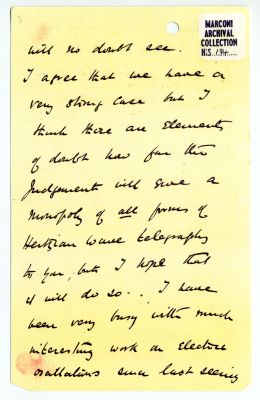 3
MARCONI
ARCHIVAL
COLLECTION
HIS.
will no doubt see.
I agree that we have a
very strong case but I
think there are Elements
of doubt how far the
Judgement will give a
Monopoly of all forms of
Hertzian wave telegraphy
to you, but I hope that
it will do so. I have
been very busy with much
interesting work on Electric
oscillations since last seeing